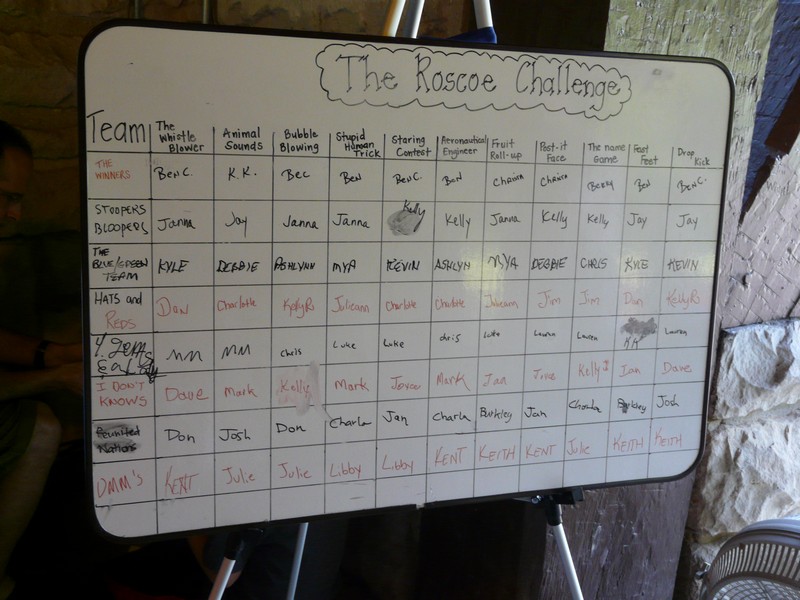 The Roscoe Challenge
Team The Whistle Blower Animal Sounds Bubble Blowing Stupid Human Trick Staring Contest Aeronautical Engineer Fruit Roll-up Post-it Face The name Game Fast Feet Drop Kick
THE WINNERS Ben C. K.K. Bec Ben Ben C. Ben Chrissa Chrissa Becky Ben Ben C.
STOOPERS BLOOPERS Janna Jay Janna Janna Kelly Kelly Janna Kelly Kelly Jay Jay
THE BLUE/GREEN TEAM KYLE DEBBIE ASHLYNN MYA KEVIN ASHLYN MYA DEBBIE CHRIS KYLE KEVIN
HATS and REDS Don Charlotte Kelly R Julieann Charlotte Charlotte Julieann Jim Jim Don Kelly R
MM MM Chris Luke Luke chris Luke Lauren Lauren Lauren
I DON'T KNOWS Dave Mark Kelly Mark Joyce Mark Ian Kelly Ian Dave
Reunited Nations Don Josh Don Charla Jan Charla Burkley Jan Charla Burkley Josh
DMM'S KENT Julie Julie Libby Libby KENT KEITH KENT Julie KEITH KEITH